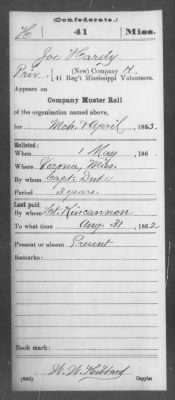 (Confederate.)
H 41 Miss.
Joe Hardy
Priv., (New) Company H,
41 Reg't Mississippi Volunteers.
Appears on
Company Muster Roll
of the organization named above,
for Mch & April, 1863.
Enlisted:
When 1 May, 186
Where Verona, Miss.
By whom Capt. Duke
Period 3 years
Last paid:
By whom Lt. Kincannon
To what time Aug. 31, 1862.
Present or absent Present
Remarks:
Book mark:
W. W. Hibbard
Copyist.